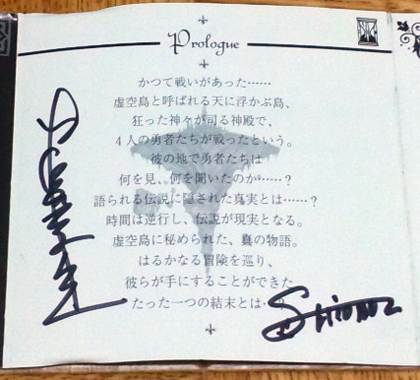 Prologue
かつて戦いがあった……
虚空島と呼ばれる天に浮かぶ島、
狂った神々が司る神殿で、
4人の勇者たちが戦ったという。
彼の地で勇者たちは
何を見、何を聞いたのか……?
語られる伝説に隠された真実とは……?
時間は逆行し、伝説が現実となる。
虚空島に秘められた、囊の物語。
はるかなる冒険を巡り、
彼らが手にすることができた
たった一つの結末とは